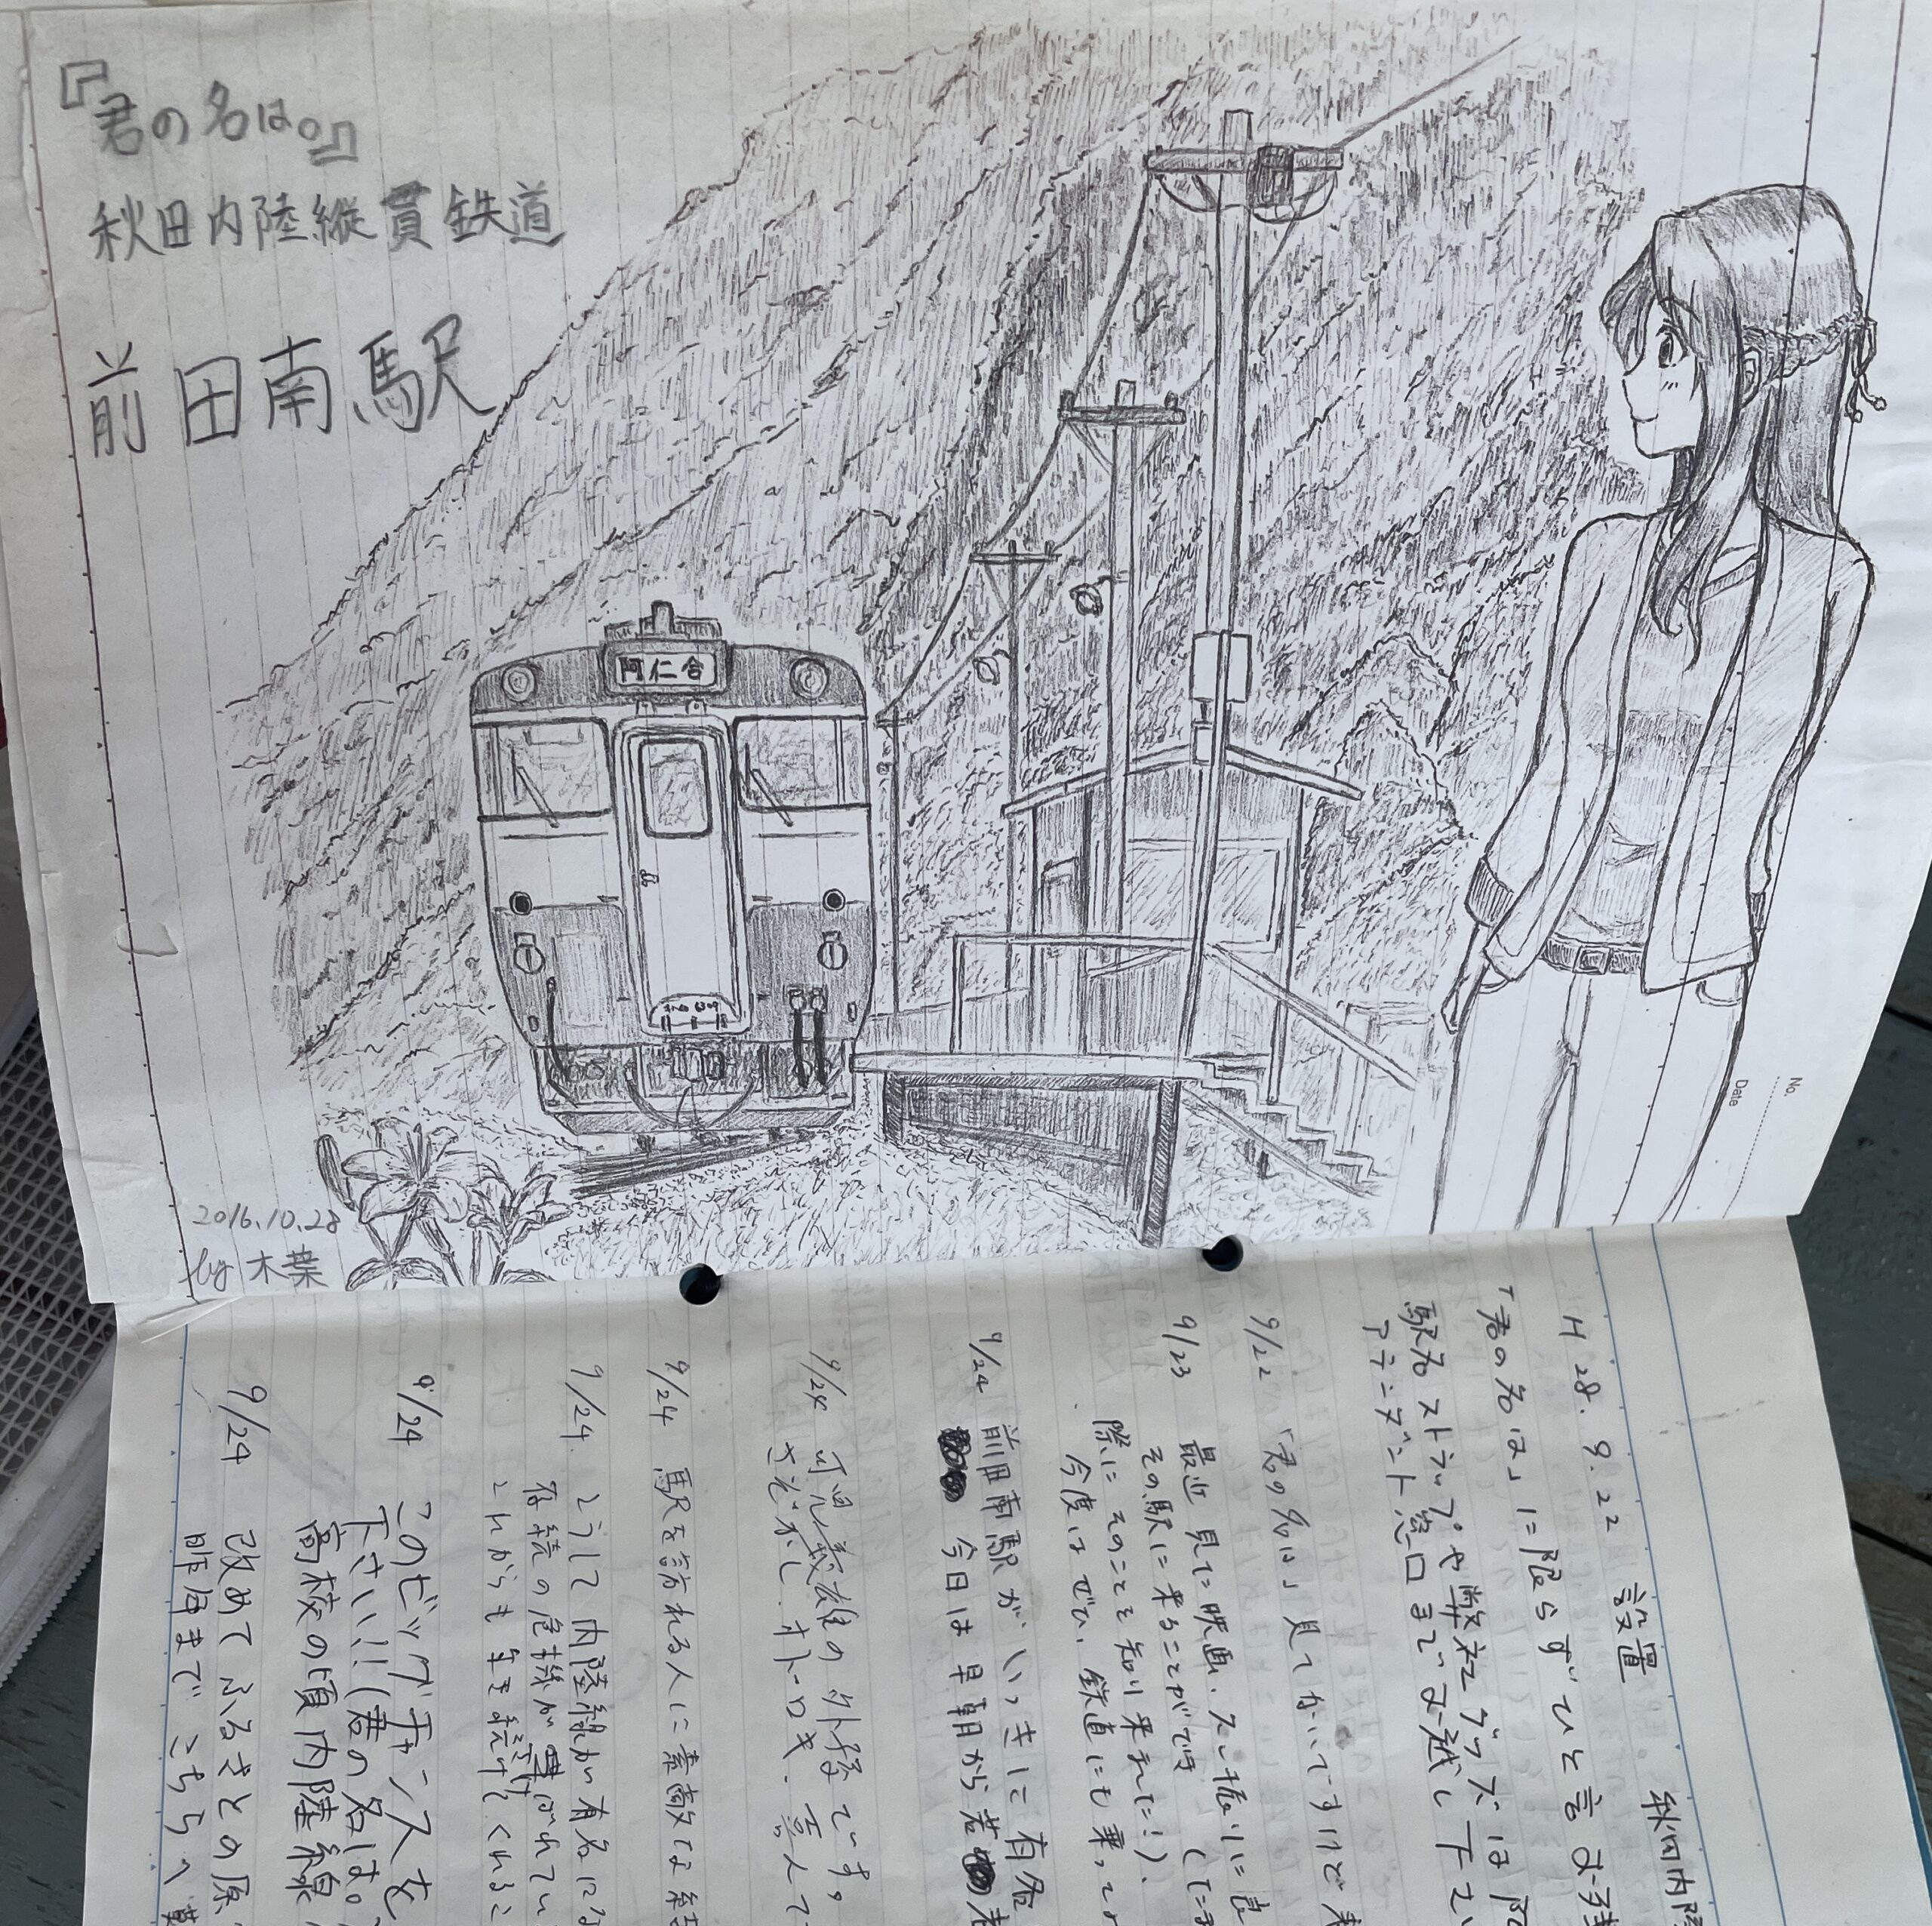 『君の名は。』
秋田内陸縦貫鉄道
前田南駅
阿仁合
2016.10.28
by 木葉
No.
Date
秋田内陸
H28.9.22 設置
「君の名は」に限らずひと言お残
駅名ストラップや弊社グッズは阿
アテンダント窓口までお越し下さい
9/22 「君の名は」見てないですけど来
9/23 最近見た映画、久し振りに良
その駅に来ることができ
際にそのことを知り来ました!)、
今度はぜひ、鉄道にも乗って
9/24 前田南駅がいっきに有名
今日は早朝から若
9/24 可児義雄の外孫です。
9/24 駅を訪れる人に素敵な結
9/24 こうして内陸線が有名にな
存続の危機が
これからも年を続けてくれるこ
9/24 このビッグチャンスを
下さい!!(君の名は。
高校の頃内陸線
9/24 改めてふるさとの原
昨年まで こちらへ